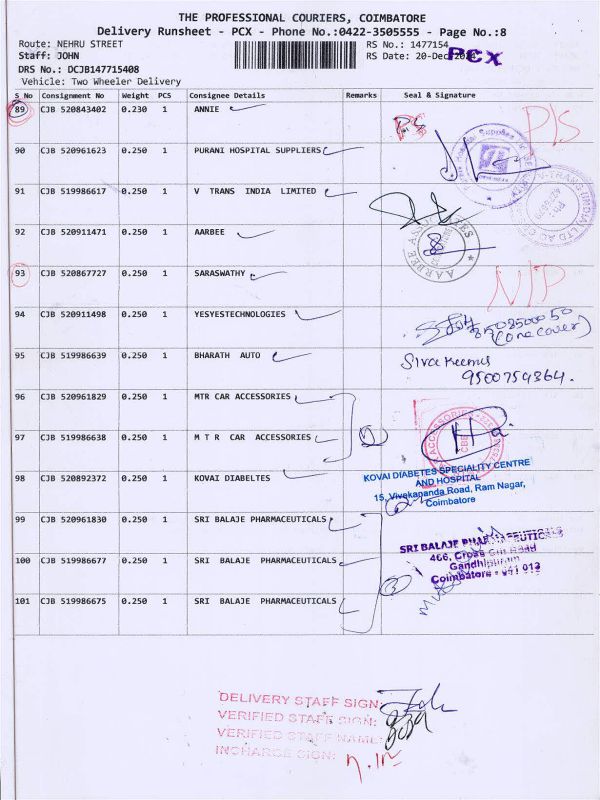 THE PROFESSIONAL COURIERS, COIMBATORE
Delivery Runsheet - PCX - Phone No.:0422-3505555 - Page No.:8
Route: NEHRU STREET
RS No.: 1477154
Staff: JOHN
RS Date: 20-Dec
PCX
DRS No.: DCJB147715408
Vehicle: Two Wheeler Delivery
S No Consignment No Weight PCS Consignee Details Remarks Seal & Signature
89 CJB 520843402 0.230 1 ANNIE
P/S
90 CJB 520961623 0.250 1 PURANI HOSPITAL SUPPLIERS
91 CJB 519986617 0.250 1 V TRANS INDIA LIMITED
92 CJB 520911471 0.250 1 AARBEE
AARBEE ASSOCIATES
93 CJB 520867727 0.250 1 SARASWATHY
N/P
94 CJB 520911498 0.250 1 YESYESTECHNOLOGIES
(one cover)
95 CJB 519986639 0.250 1 BHARATH AUTO
9500759364.
96 CJB 520961829 0.250 1 MTR CAR ACCESSORIES
97 CJB 519986638 0.250 1 M T R CAR ACCESSORIES
98 CJB 520892372 0.250 1 KOVAI DIABELTES
KOVAI DIABETES SPECIALITY CENTRE
AND HOSPITAL
15, Vivekananda Road, Ram Nagar,
Coimbatore
99 CJB 520961830 0.250 1 SRI BALAJE PHARMACEUTICALS
SRI BALAJE PHARMACEUTICALS
466, Cross Cut Road
Gandhipuram
Coimbatore - 641 012
100 CJB 519986677 0.250 1 SRI BALAJE PHARMACEUTICALS
101 CJB 519986675 0.250 1 SRI BALAJE PHARMACEUTICALS
DELIVERY STAFF SIGN:
VERIFIED STAFF SIGN:
VERIFIED STAFF NAME:
INCHARGE SIGN: